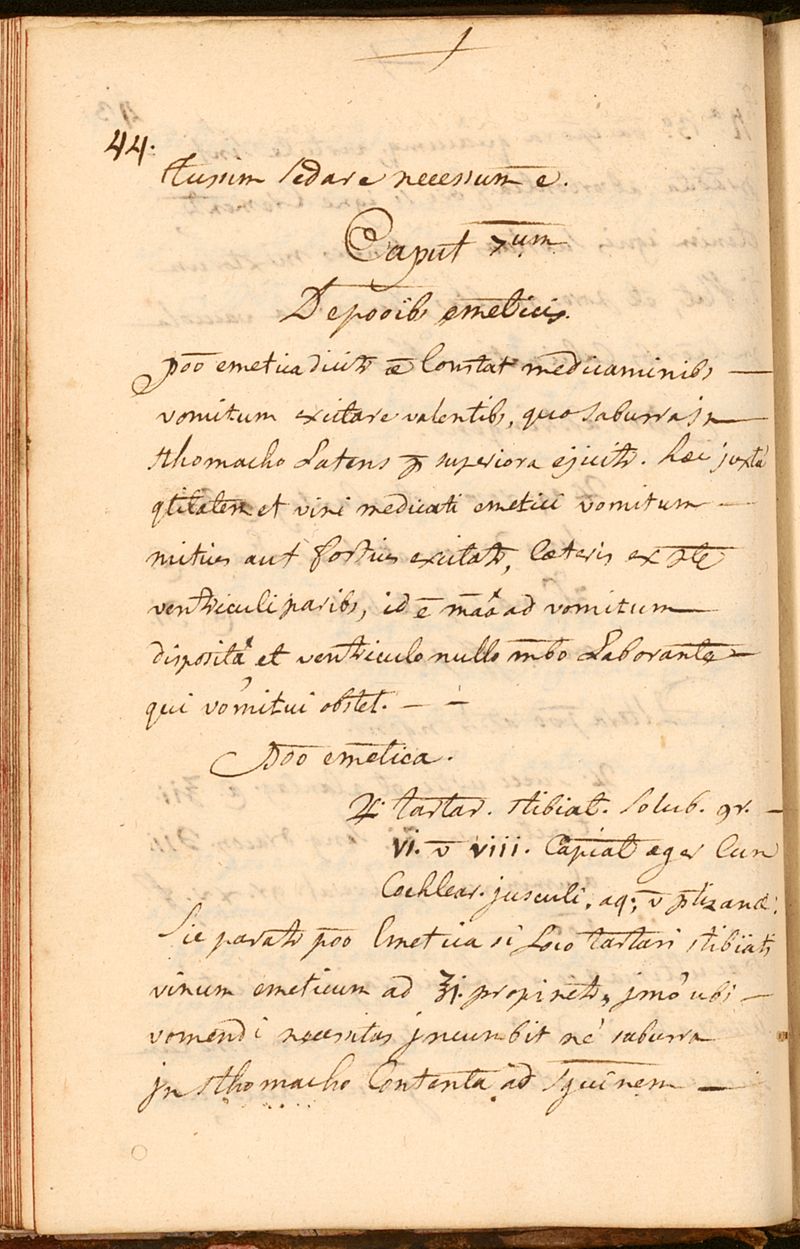 44.
tussim sedare necessum ē.
Caput 7um
De poōib, emeticis.
poō emetica dicitr æ Constat medicaminib,
vomitum excitare valentib, quo saburra jn
sthomacho Latens ꝑ superiora ejicitr. hæc juxtà
qtitatem et vini medicati emetici vomitum
mitius aut fortius excitatr, Cæteris ex pte
ventriculi parib, id ē māâ ad vomitum
dispositâ et ventriculo nullo mbo Laborante
qui vomitui obstet. — —
poō emetica.
♃ tartar. stibiat. solub. gr.
vi. v̄ viii. Capiat æger Cum
Cochlear. jusculi, aq; v̄ ptizanæ.
Sic paratr poō Emetica si Loco tartari stibiati
vinum emeticum ad ʒj. propinetr, jmô ubi
vomendi necessitas jncumbit né saburra
jn sthomacho Contenta ad sguinem